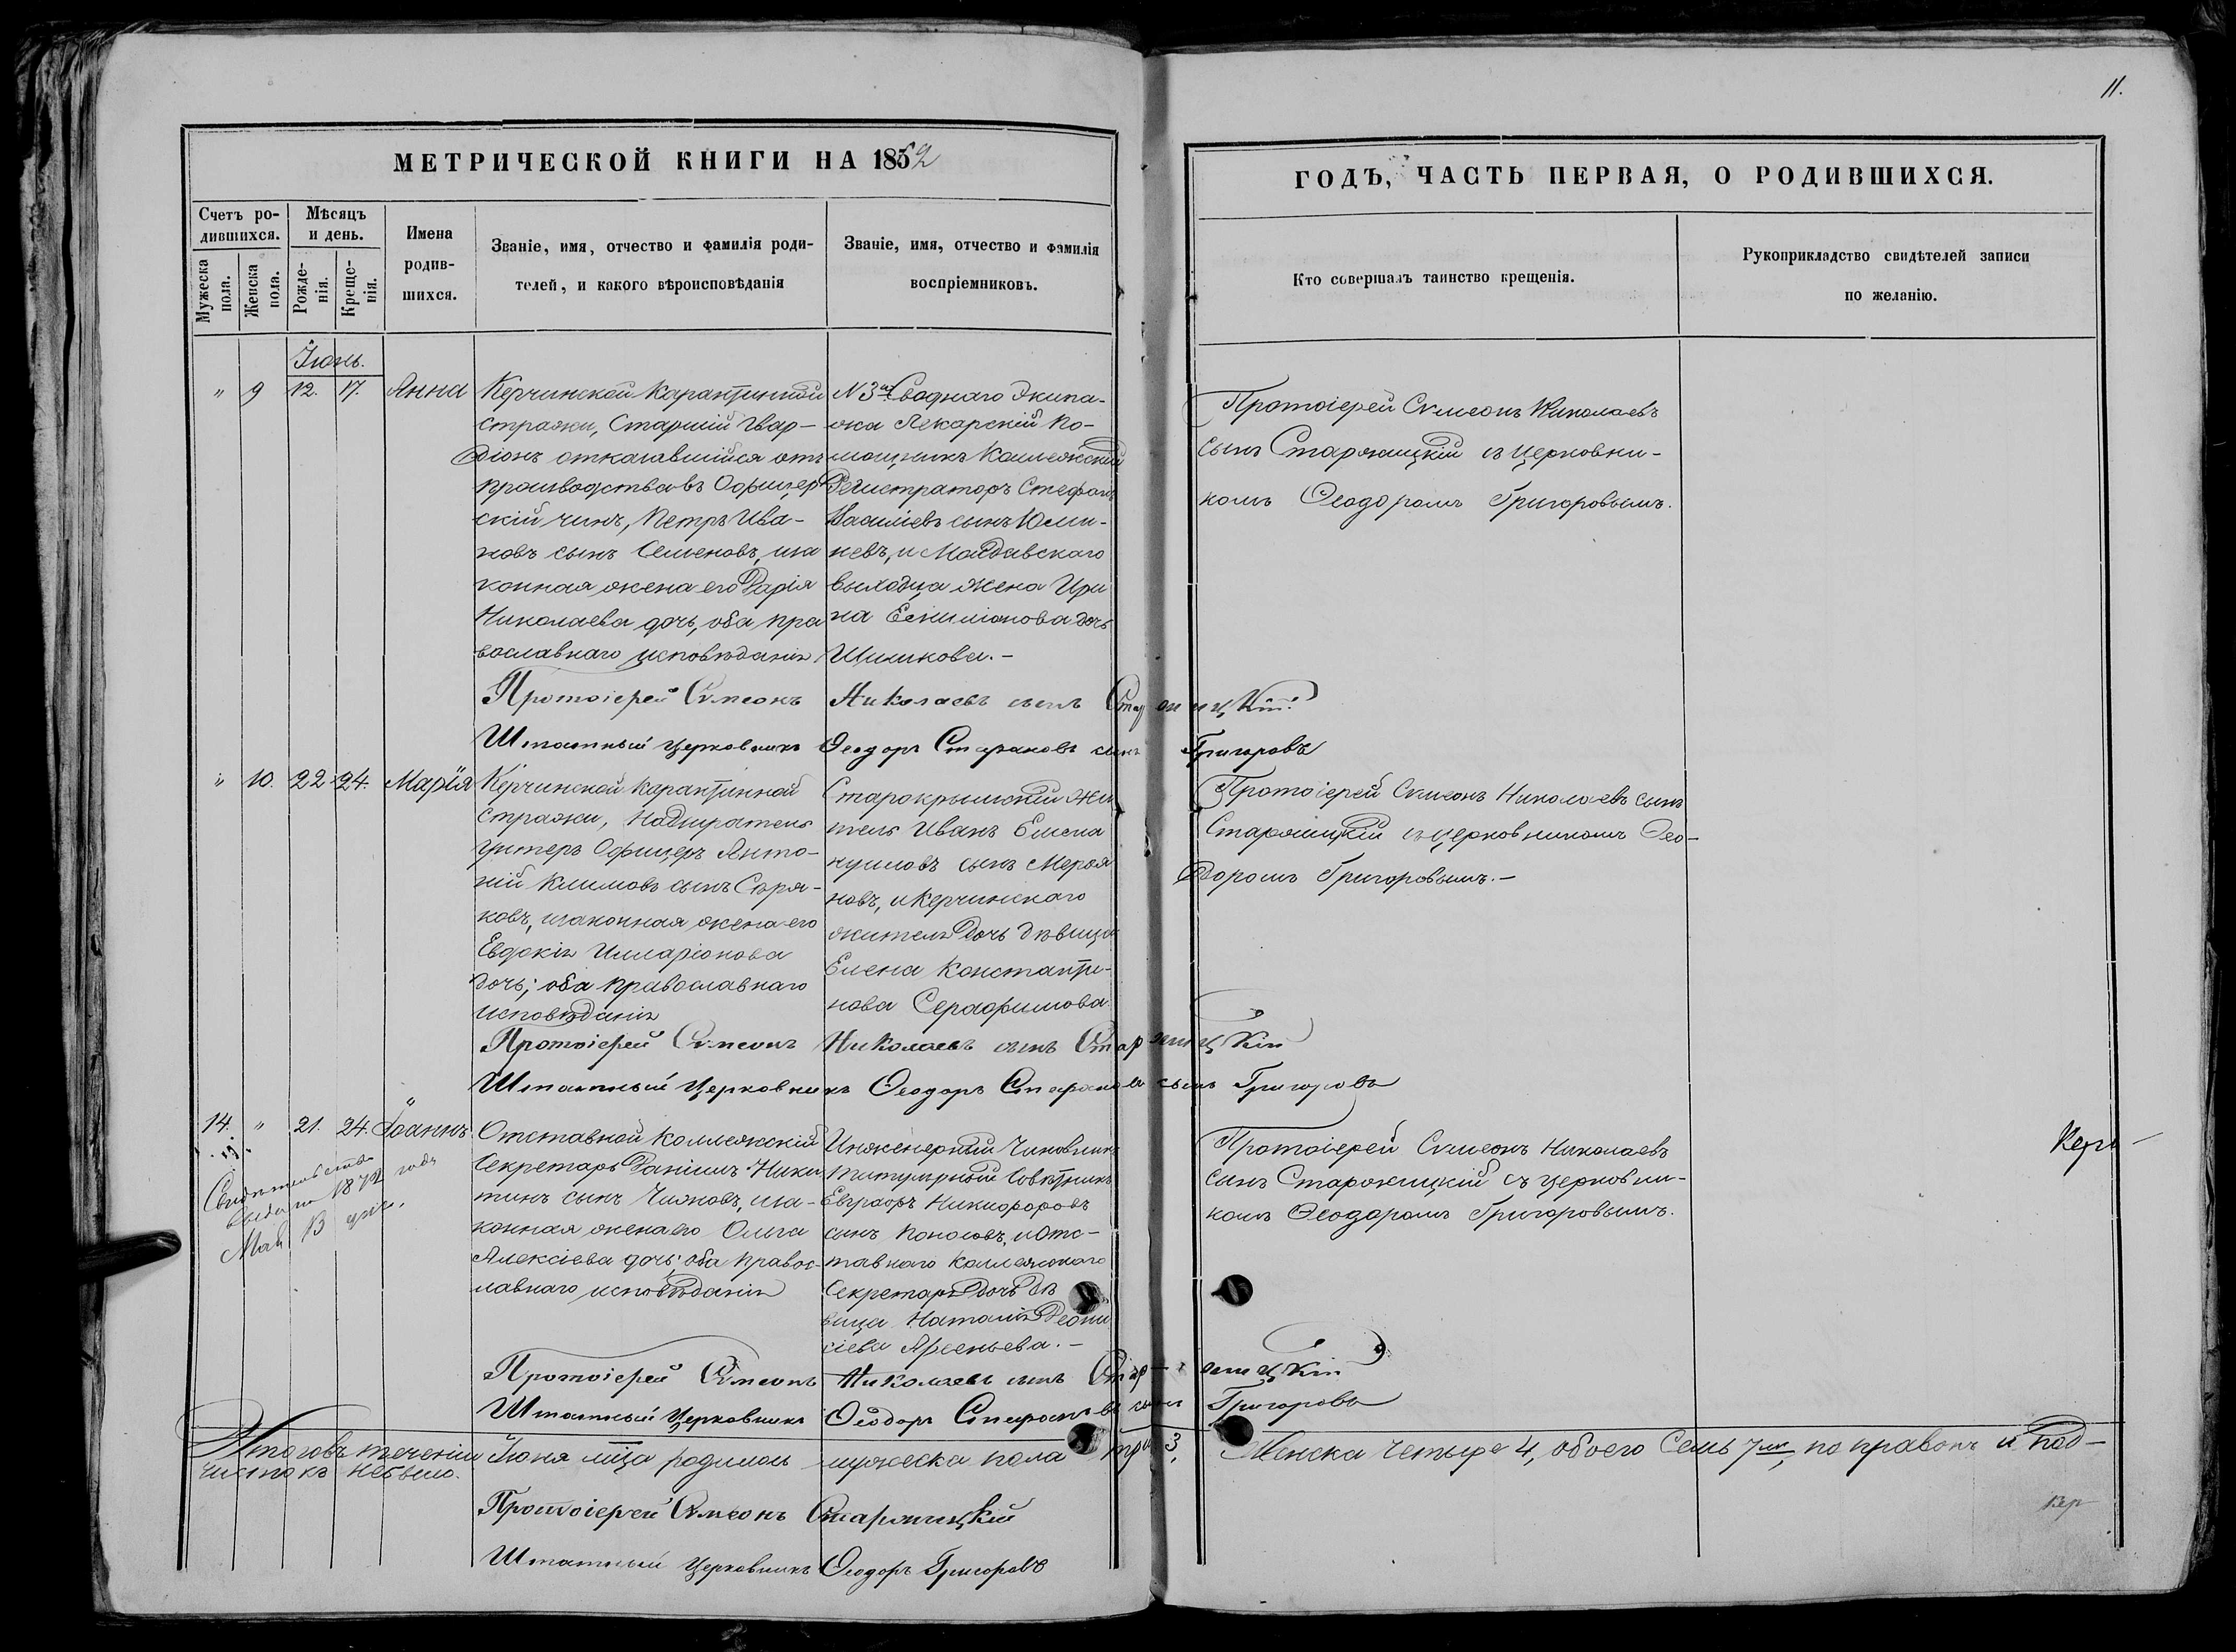 11.
МЕТРИЧЕСКОЙ КНИГИ НА 1852
ГОДЪ, ЧАСТЬ ПЕРВАЯ, О РОДИВШИХСЯ.
Счетъ ро-
дившихся.
Мужеска
пола.
Женска
пола.
Мѣсяцъ
и день.
Рожде-
нія.
Креще-
нія.
Имена
родив-
шихся.
Званіе, имя, отчество и фамилія роди-
телей, и какого вѣроисповѣданія
Званіе, имя, отчество и фамилія
воспріемниковъ.
Кто совершалъ таинство крещенія.
Рукоприкладство свидѣтелей записи
по желанію.
Іюнь.
" 9 12. 17. Анна
Керчинской Карантинной
стражи, Старшій Гвар-
діонъ отказавшійся отъ
производства въ Офицер
скій чинъ, Петръ Ива-
новъ сынъ Семеновъ, иза
конная жена его Дарія
Николаева дочь, оба пра
вославнаго исповѣданія
N 3го Своднаго Экипа-
жа Лекарскій По-
мощникъ Коллежскій
Регистраторъ Стефанъ
Василіевъ сынъ
невъ, и Молдавскаго
выходца жена Ири
на дочь
Шишкова.-
Протоіерей Сѵмеонъ Николаевъ
сынъ Старжицкій съ церковни-
комъ Ѳеодоромъ Григоровымъ.
Протоіерей Сѵмеонъ Николаевъ сынъ Старжицкій
Штатный церковникъ Ѳеодоръ Стефановъ сынъ Григоровъ
" 10. 22 24. Марія
Керчинской Карантинной
стражи, Надзиратель
Унтеръ Офицеръ Анто-
ній Климовъ сынъ Сѣря-
ковъ, изаконная жена его
Евдокія Илларіонова
дочь; оба православнаго
исповѣданія
Старокрымскій Жи
тель Иванъ
сынъ
новъ, и Керчинскаго
жителя дочь дѣвица
Елена Константи-
нова Серафимова.
Протоіерей Сѵмеонъ Николаевъ сынъ
Старжицкій съ церковникомъ Ѳео-
доромъ Григоровымъ.-
Протоіерей Сѵмеонъ Николаевъ сынъ Старжицкій
Штатный Церковникъ Ѳеодоръ Стефановъ сынъ Григоровъ
14. " 21. 24. Іоаннъ.
Свидѣтельство
выдано 1872 года
Мая 13 дня.
Отставной Коллежскій
Секретарь Даніилъ Ники
тинъ сынъ иза-
конная жена его Ольга
Алексіева дочь; оба Правос-
лавнаго исповѣданія
Инженерный Чиновникъ
Титулярный Совѣтникъ
Евграфъ Никифоровъ
сынъ и Отс-
тавнаго Коллежскаго
Секретаря дочь дѣ
вица Наталія Деони
сіева Арсеньева.-
Протоіерей Сѵмеонъ Николаевъ
сынъ Старжицкій съ церковни-
комъ Ѳеодоромъ Григоровымъ.
Керч-
Протоіерей Сѵмеонъ Николаевъ сынъ Старжицкій
Штатный Церковникъ Ѳеодоръ Стефановъ сынъ Григоровъ
Итоговъ теченіи Іюня мца родилось мужеска пола три 3, Женска четыре 4, обоего Семь 7мь, по правокъ и под-
чистокъ небыло.
Протоіерей Сѵмеонъ Старжицкій
Штатный Церковникъ Ѳеодоръ Григоровъ
Кер